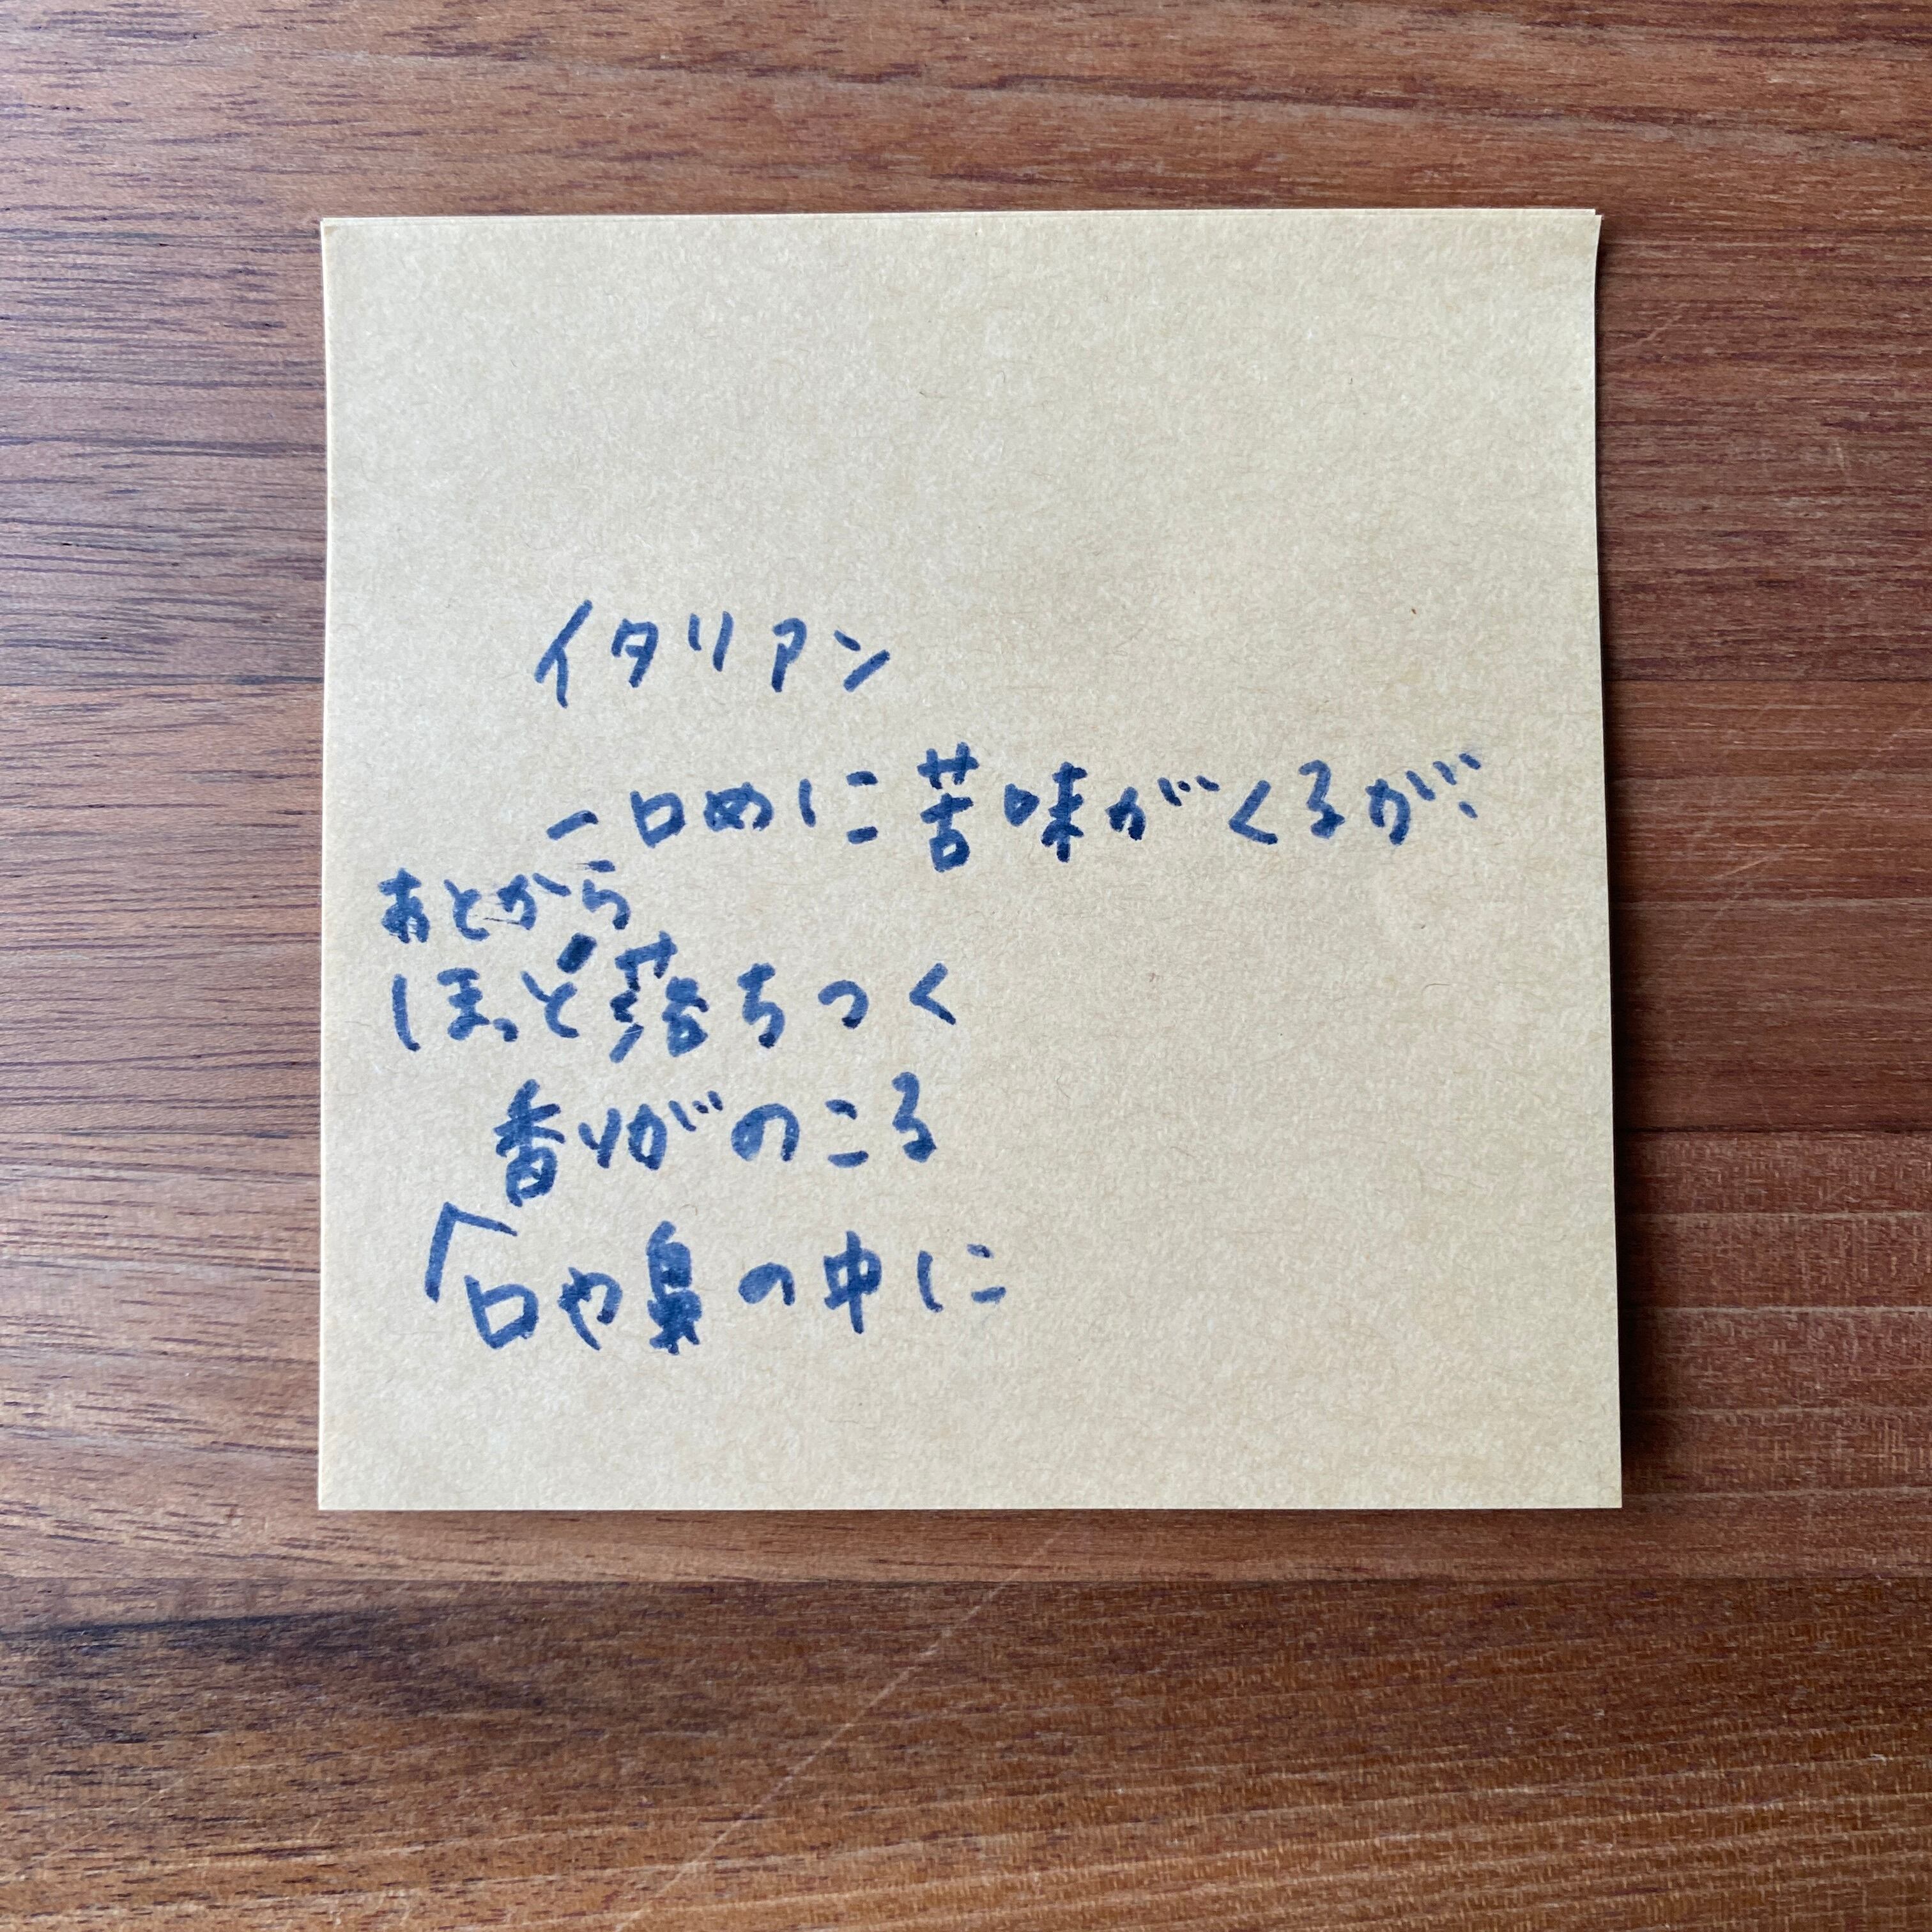 イタリアン
一口めに苦味がくるが、
あとから
ほっと落ちつく
香りがのこる
口や鼻の中に